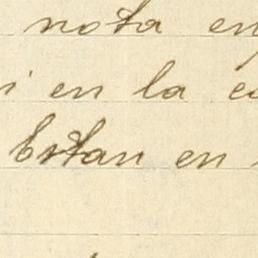 nota en
i en la co
Estan en